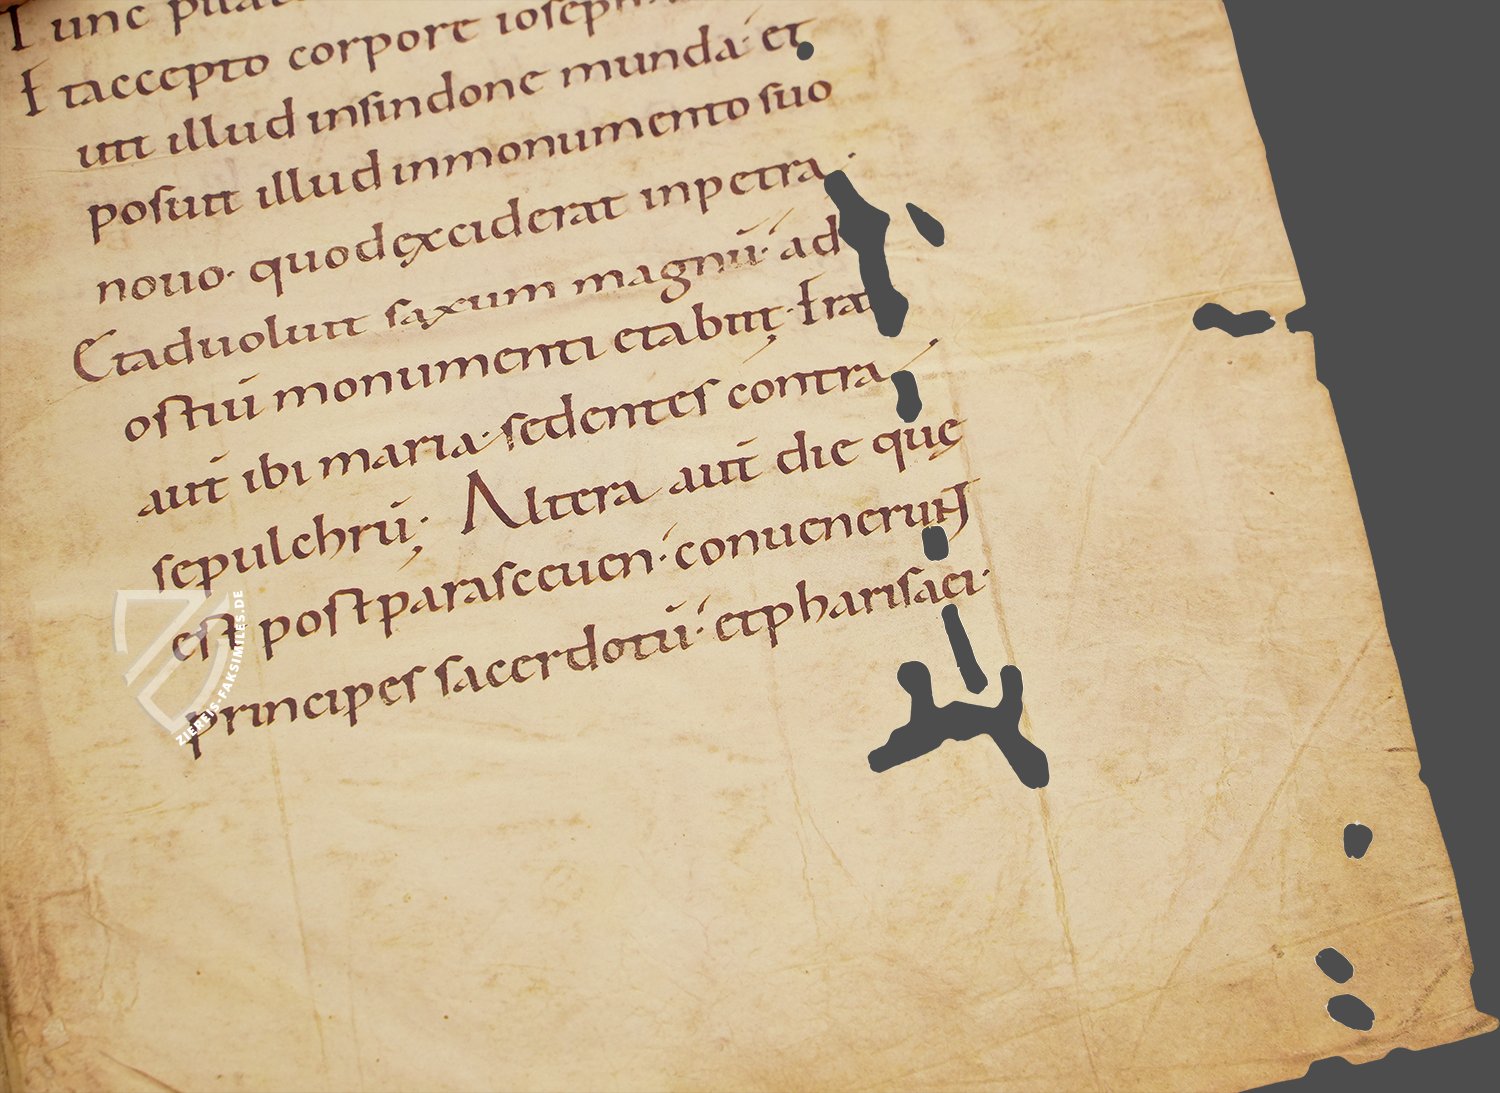 Tunc
Et accepto corpore ioseph
uit illud insindone munda· et
posuit illud inmonumento suo
nouo· quod exciderat inpetra·
Et aduoluit saxum magnū· ad
ostiū monumenti et abiit; Erat
aūt ibi maria· sedentes contra
sepulchrū; Altera aūt die quę
est post parasceuen· conuenerunt
principes sacerdotū· et pharisaei·
ZIEREIS-FAKSIMILES.DE